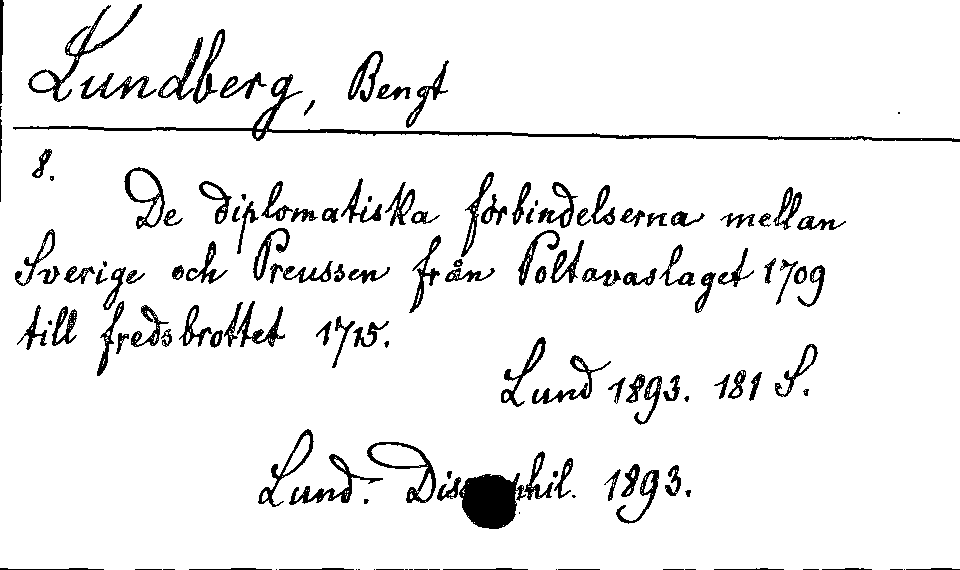 Lundberg, Bengt
8.
De diplomatiska förbindelserna mellan
Sverige och Preussen från Poltavaslaget 1709
till fredsbrottet 1715.
Lund 1893. 181 S.
Lund. phil. 1893.